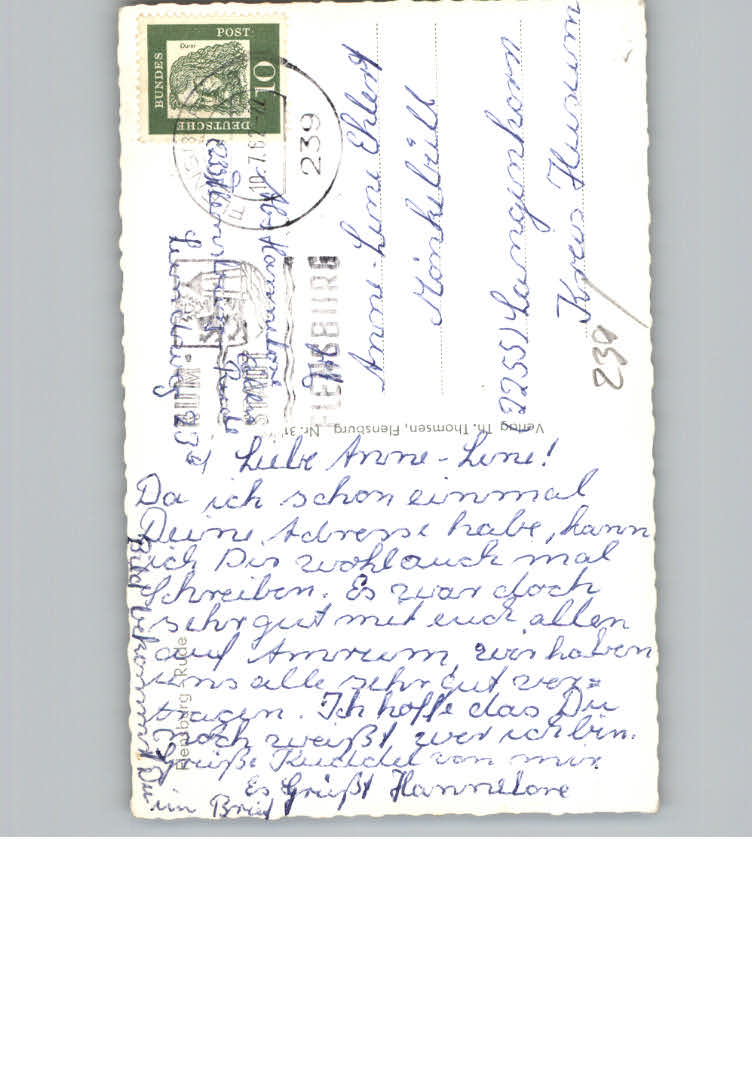 Liebe Anne-Lene!
Da ich schon einmal
Deine Adresse habe, kann
ich Dir wohl auch mal
schreiben. Es war doch
sehr gut mit euch allen
auf Amrum, wir haben
uns alle sehr gut ver=
tragen. Ich hoffe das Du
noch weißt, wer ich bin.
Grüße Kuddel von mir.
Es Grüßt Hannelore
Bild bekommst Du
im Brief
Flensburg - Rude
Verlag Th. Thomsen, Flensburg Nr. 31
Anne-Lene Ehlert
Mönkebüll
(2255) Langenhorn
Kreis Husum
239
Abs. Hannelore
239 Flensburg
23
DEUTSCHE
BUNDES
POST
10
239
10.7.62
FLENSBURG